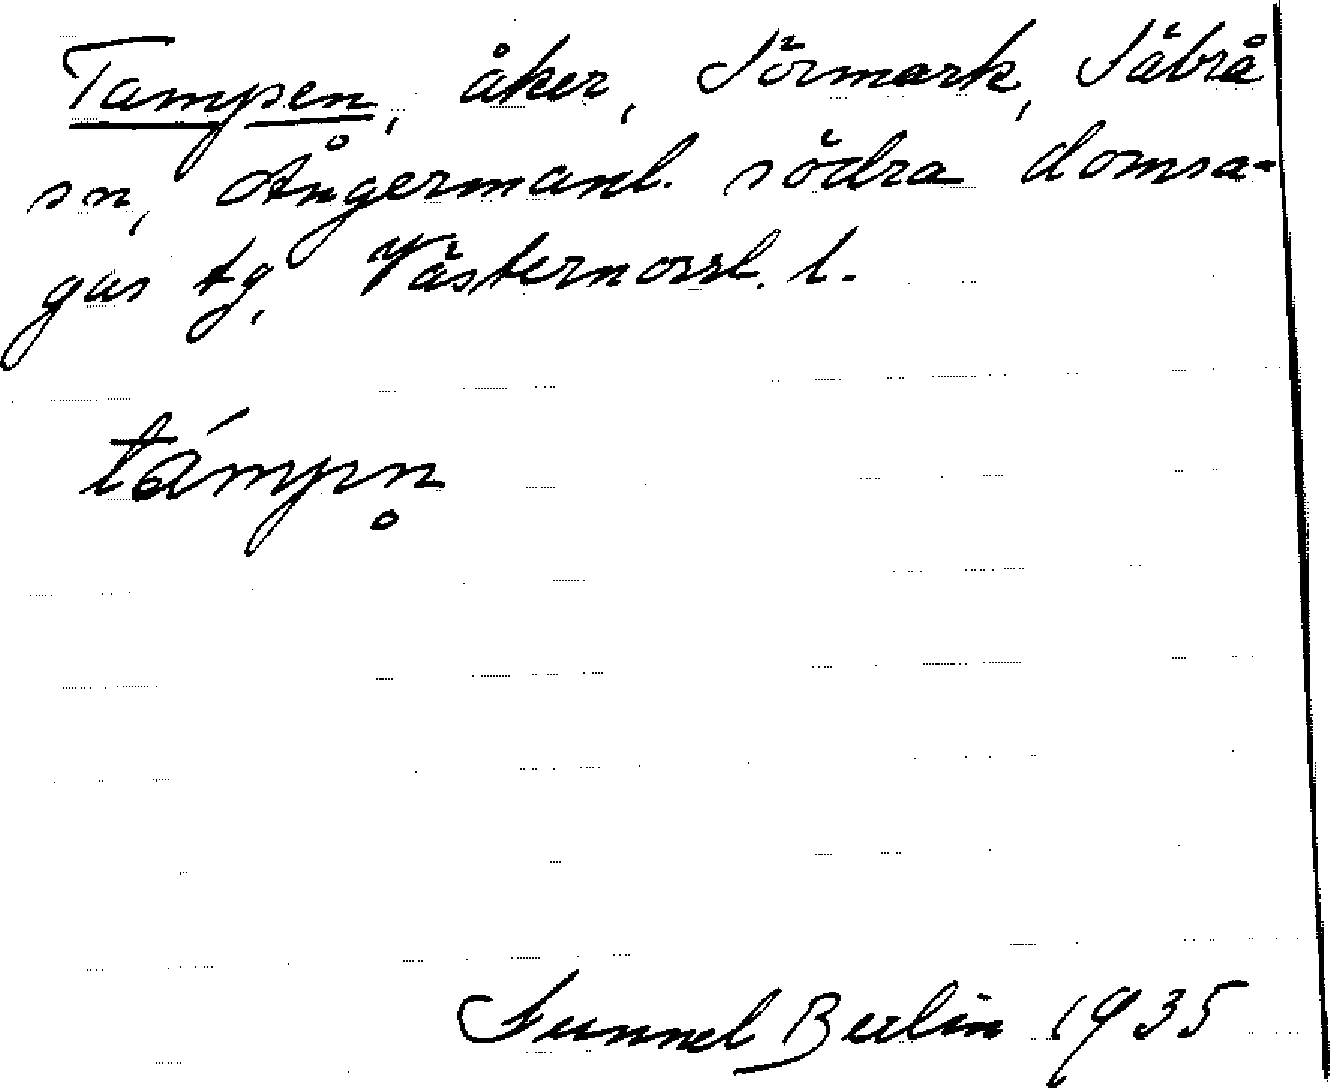 Tampen, åker, Sörmark, Säbrå
sn, Ångermanl. södra domsa-
gas tg, Västernorrl. l.
támpn̥
Sunnel Berlin 1935